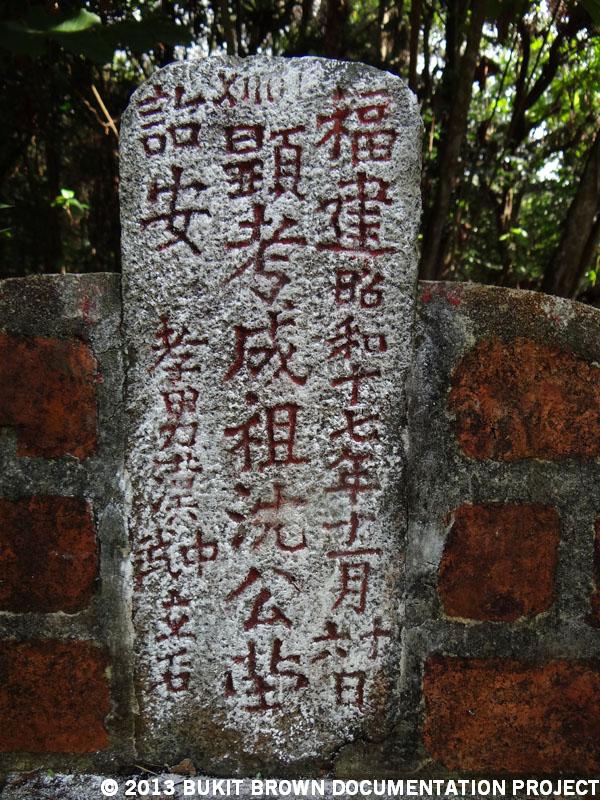 福建 昭和十七年十二月十六日
顯考成祖洗公塋
詔安 孝男 立石
© 2013 BUKIT BROWN DOCUMENTATION PROJECT